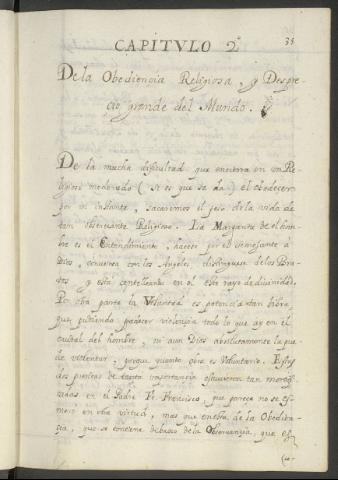 35
CAPITVLO 2º
De la Obediencia Religiosa, y Despre-
cio grande del Mundo.
De la mucha dificultad que encierra en un Re-
ligioso moderado (si es que se da) el obedecer
por un instante, sacaremos el peso de la vida de
tan obediente Religioso. La Margarita de el hom-
bre es el Entendimiento, hacese por el semejante á
Dios, conviene con los Angeles, distinguese de los Bru-
tos y esta centelleante en el este rayo de divinidad,
Por otra parte la Voluntad es potencia tan libre,
que pudiendo padecer violencia todo lo que ay en el
caudal del hombre, ni aun Dios absolutamente la pue-
de violentar, porque quanto obra es Voluntario. Estas
dos potencias de tanta importancia estuvieron tan morti-
ficadas en el Padre Fr. Francisco, que parece no se es-
mero en otra virtud, mas que en esta de la Obedien-
cia, que se contiene debajo de la Observancia, que es